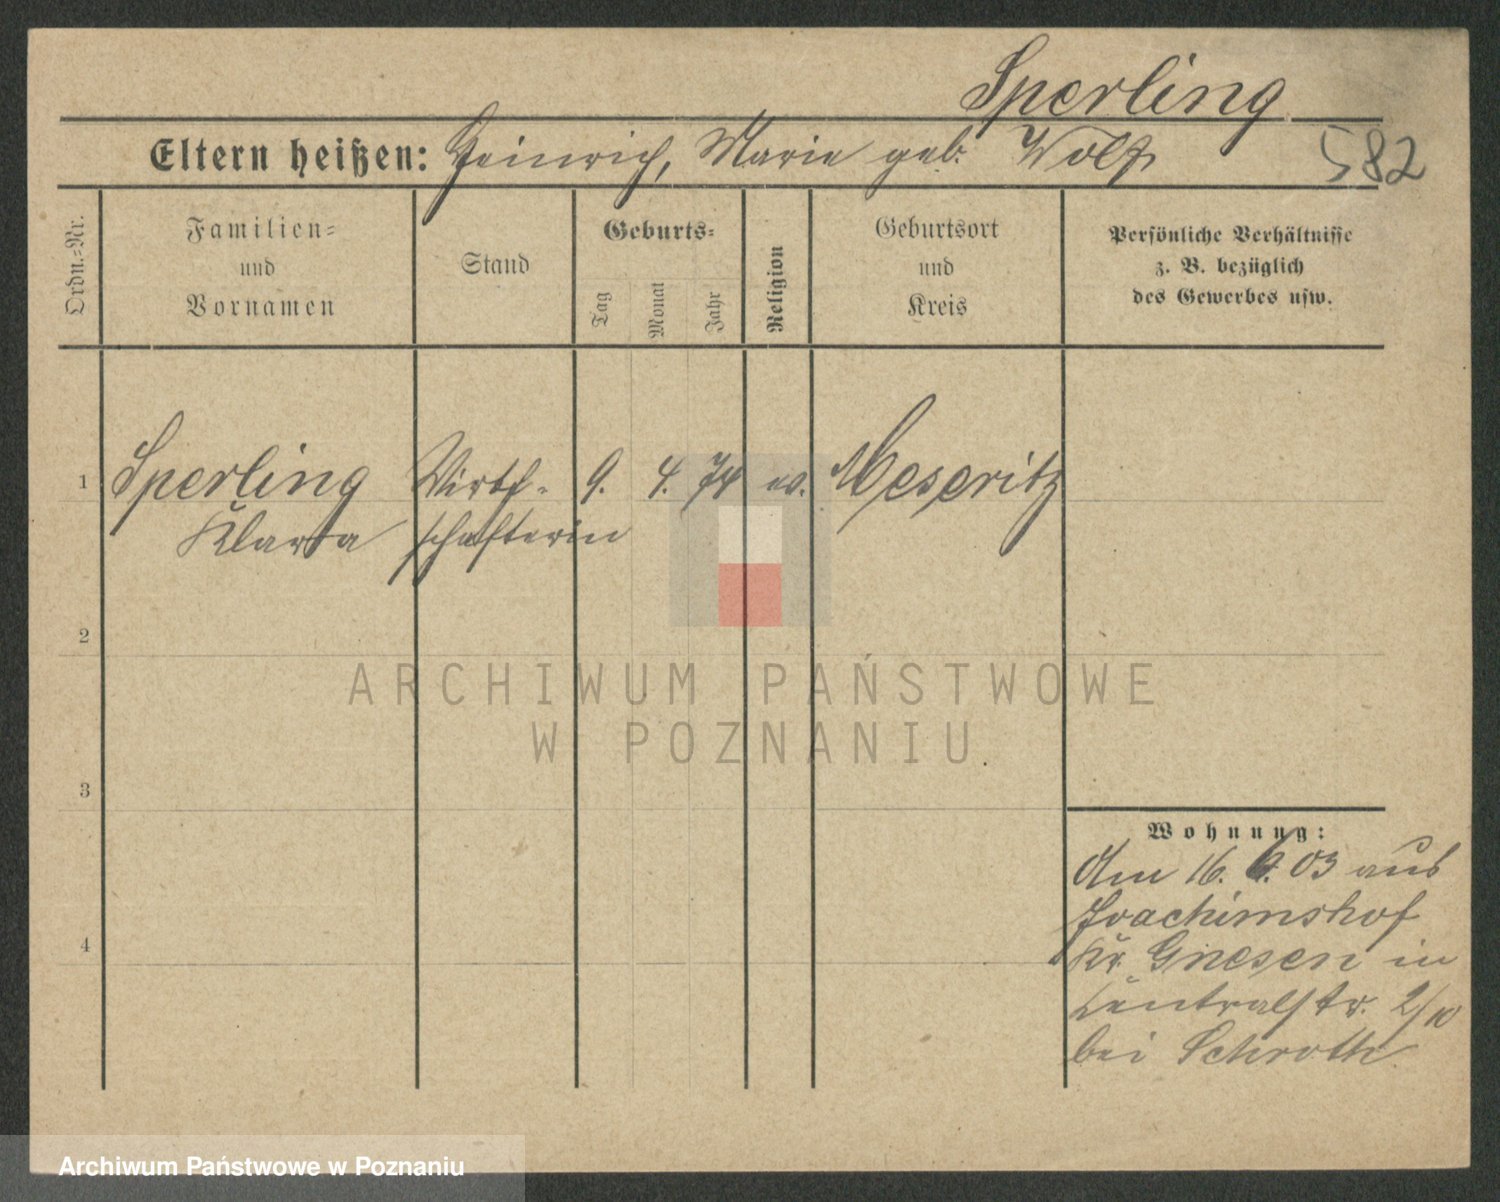 Sperling
Eltern heißen: Heinrich, Marie geb. Wolf 582
Ordn.=Nr.
Familien=
und
Vornamen
Stand
Geburts=
Tag
Monat
Jahr
Religion
Geburtsort
und
Kreis
Persönliche Verhältnisse
z. B. bezüglich
des Gewerbes usw.
1 Sperling Wirth- 9. 4. 74 ev. Meseritz
Klara schafterin
2
3
4
Wohnung:
Am 16. 6. 03 aus
Joachimshof
Kr. Gnesen in
Centralstr. 2/10
bei Schroth
ARCHIWUM PAŃSTWOWE
W POZNANIU
Archiwum Państwowe w Poznaniu